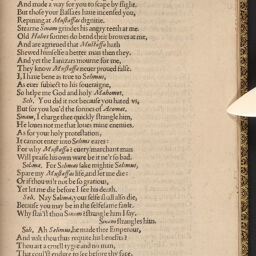 And made a way for you to scape by flight.
But those your Bassaes haue incensed you,
Repining at Mustaffaes dignitie.
Stearne Sinam grindes his angry teeth at me.
Old Halies sonnes do bend their browes at me,
And are agreeued that Mustaffa hath
Shewed himselfe a better man then they.
And yet the Ianizars mourne for me,
They know Mustaffa neuer proued false.
I, I haue bene as true to Selimus,
As euer subiect to his soueraigne,
So helpe me God and holy Mahomet.
Seli. You did it not because you hated vs,
But for you lou'd the sonnes of Acomet,
Sinam, I charge thee quickly strangle him,
He loues not me that loues mine enemies.
As for your holy protestation,
It cannot enter into Selims eares:
For why Mustaffa? euery marchant man
Will praise his own ware be it ne'r so bad.
Solima. For Solimas sake mightie Selimus,
Spare my Mustaffaes life, and let me die:
Or if thou wilt not be so gratious,
Yet let me die before I see his death.
Seli. Nay Solima, your selfe shall also die,
Because you may be in the selfesame fault.
Why stai'st thou Sinam? strangle him I say.
Sinam strangles him.
Soli. Ah Selimus, he made thee Emperour,
And wilt thou thus requite his benefits?
Thou art a cruell tygre and no man,
That could'st endure to see before thy face,